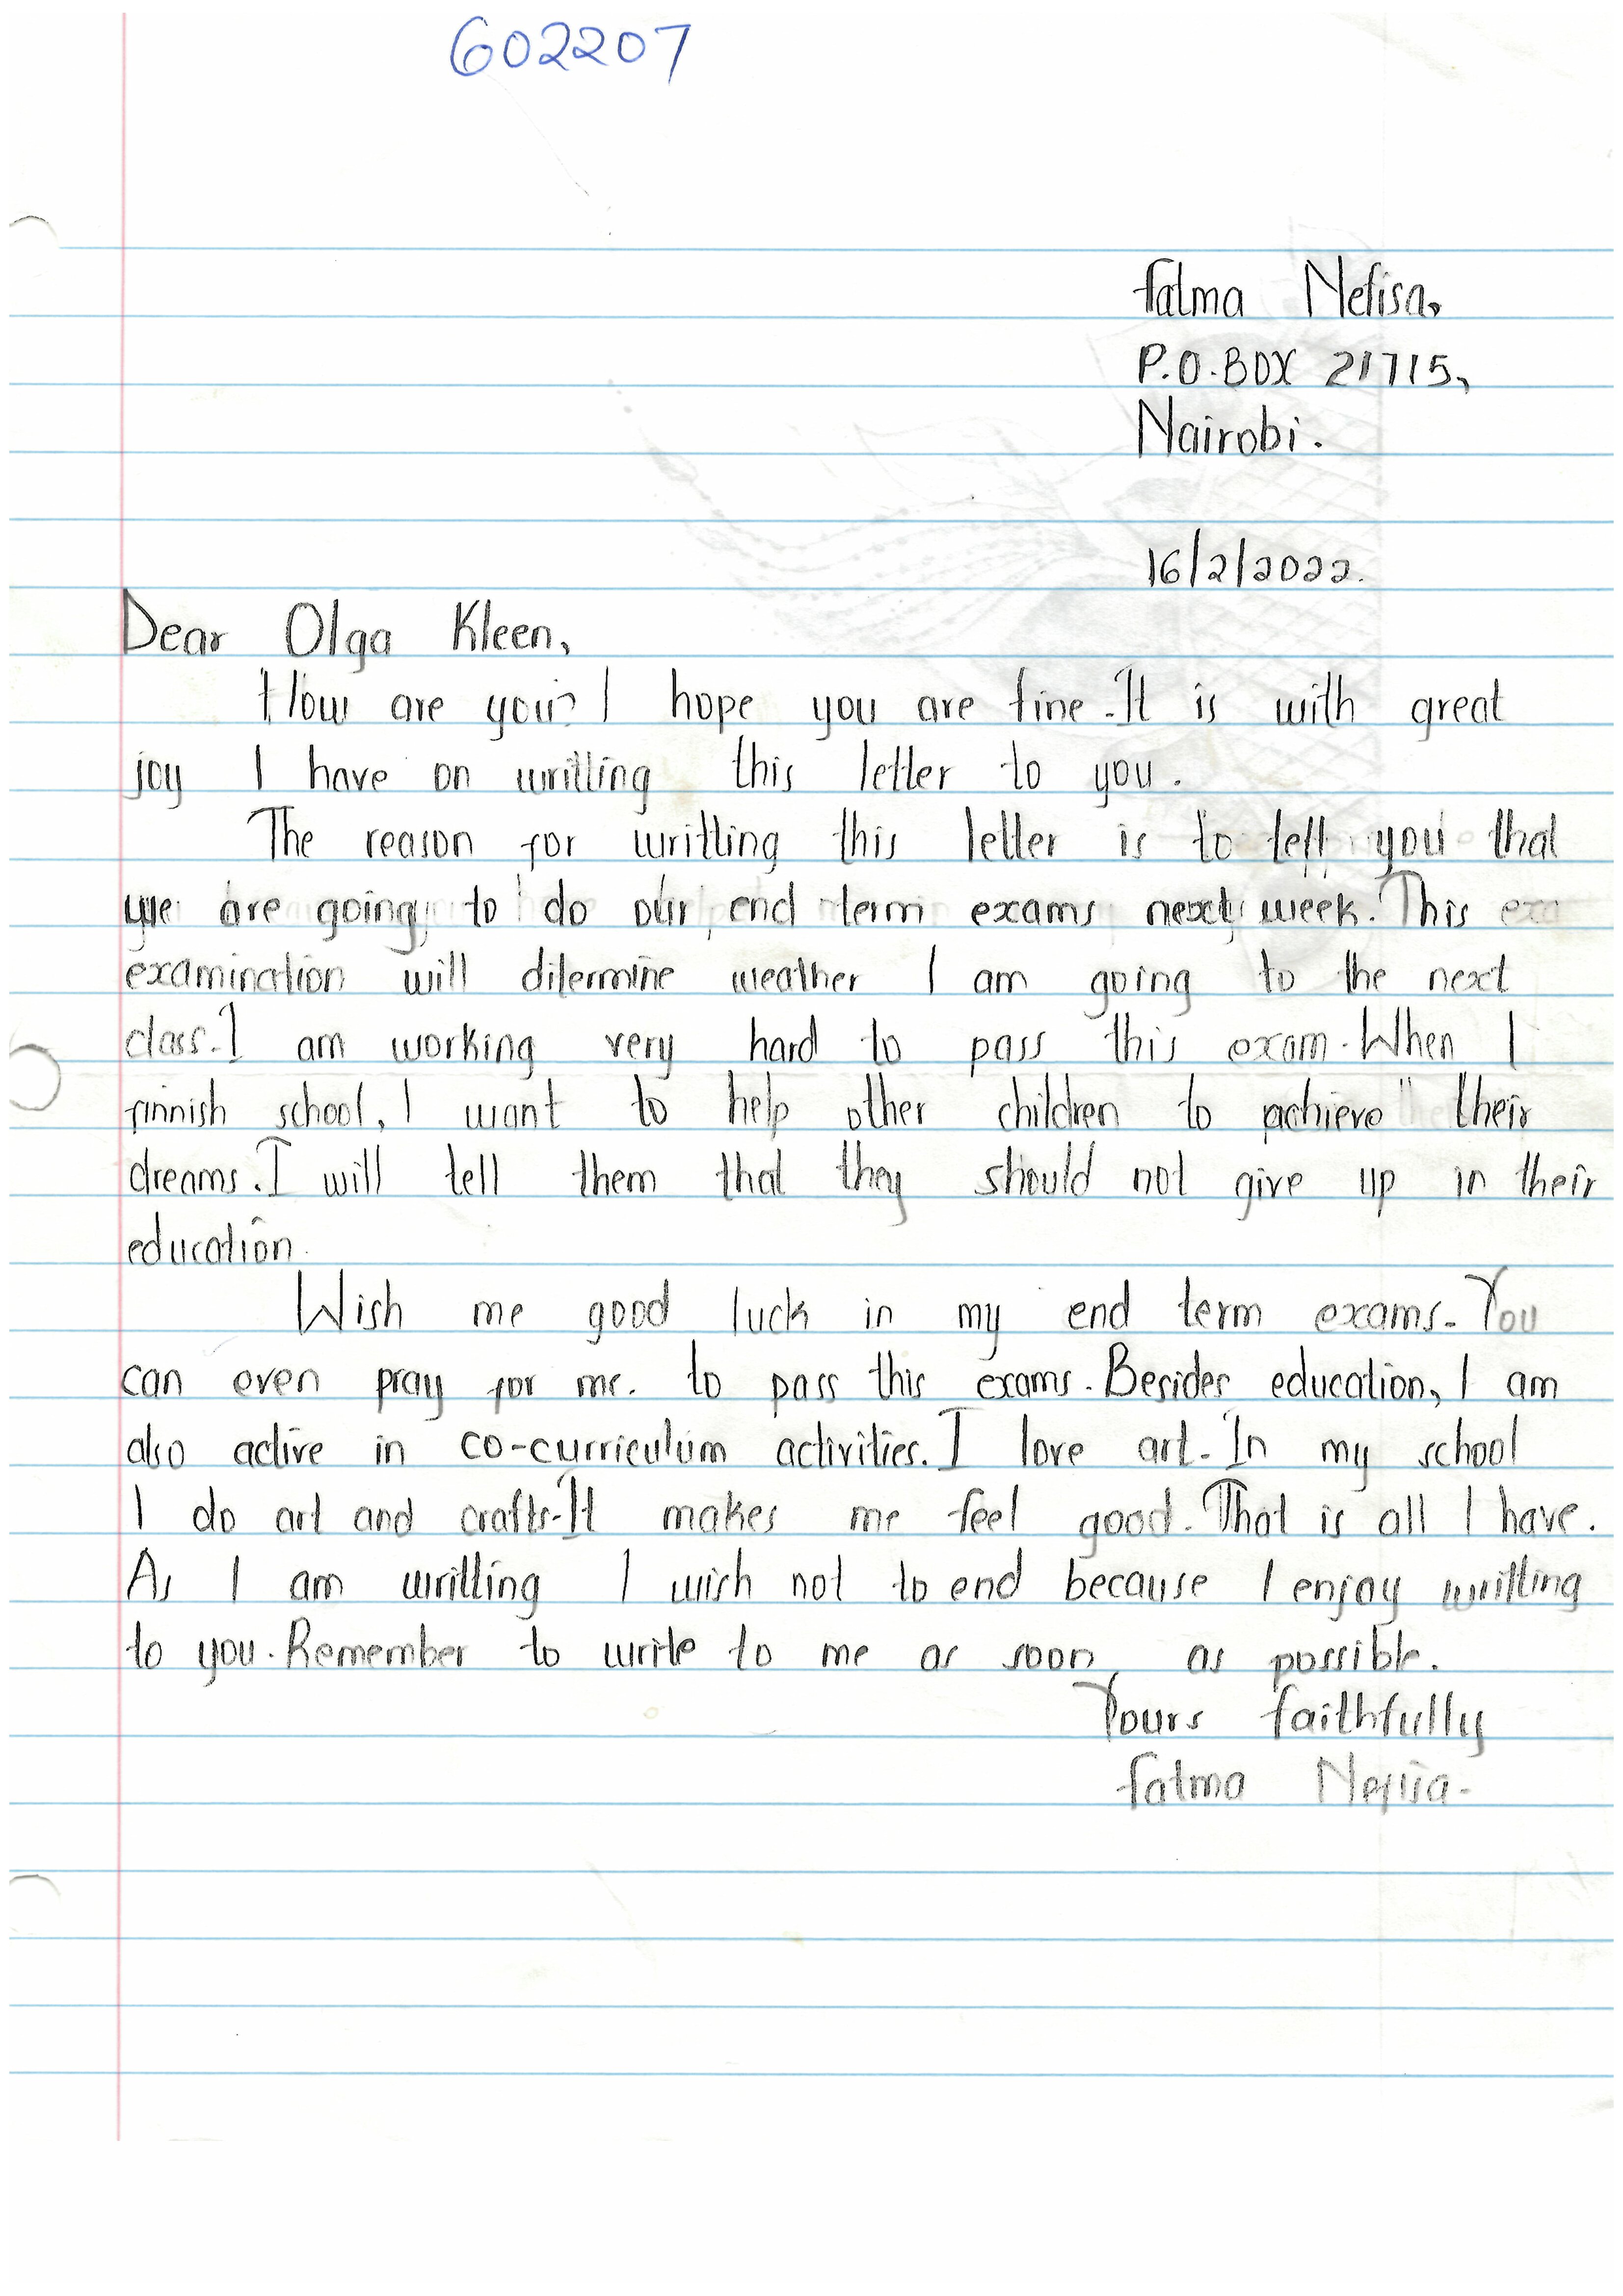 602207
Fatma Nefisa,
P.O.BOX 21715,
Nairobi.
16/2/2022.
Dear Olga Kleen,
How are you? I hope you are fine. It is with great
joy I have on writting this letter to you.
The reason for writting this letter is to tell you that
we are going to do our end term exams next week. This exa
examination will ditermine weather I am going to the next
class. I am working very hard to pass this exam. When I
finnish school, I want to help other children to achieve their
dreams. I will tell them that they should not give up in their
education.
Wish me good luck in my end term exams. You
can even pray for me. to pass this exams. Besides education, I am
also active in co-curriculum activities. I love art. In my school
I do art and crafts. It makes me feel good. That is all I have.
As I am writting I wish not to end because I enjoy writting
to you. Remember to write to me as soon as possible.
Yours faithfully
Fatma Nefisa.